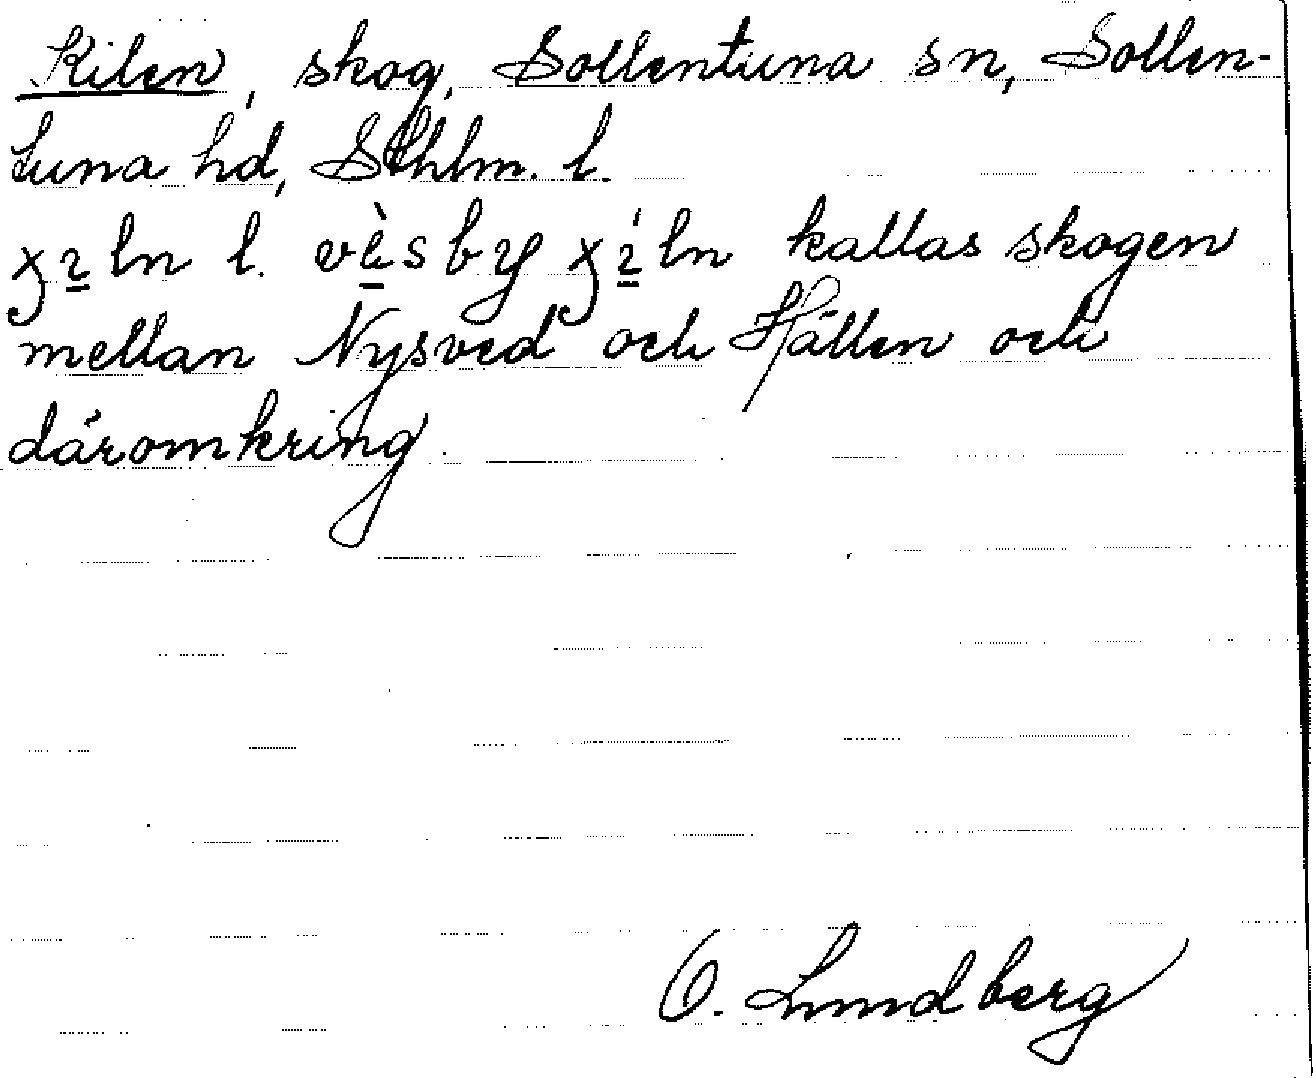 Kilen, skog, Sollentuna sn, Sollen-
tuna hd, Sthlm. l.
l. kallas skogen
mellan Nysved och Hällen och
däromkring.
O. Lundberg